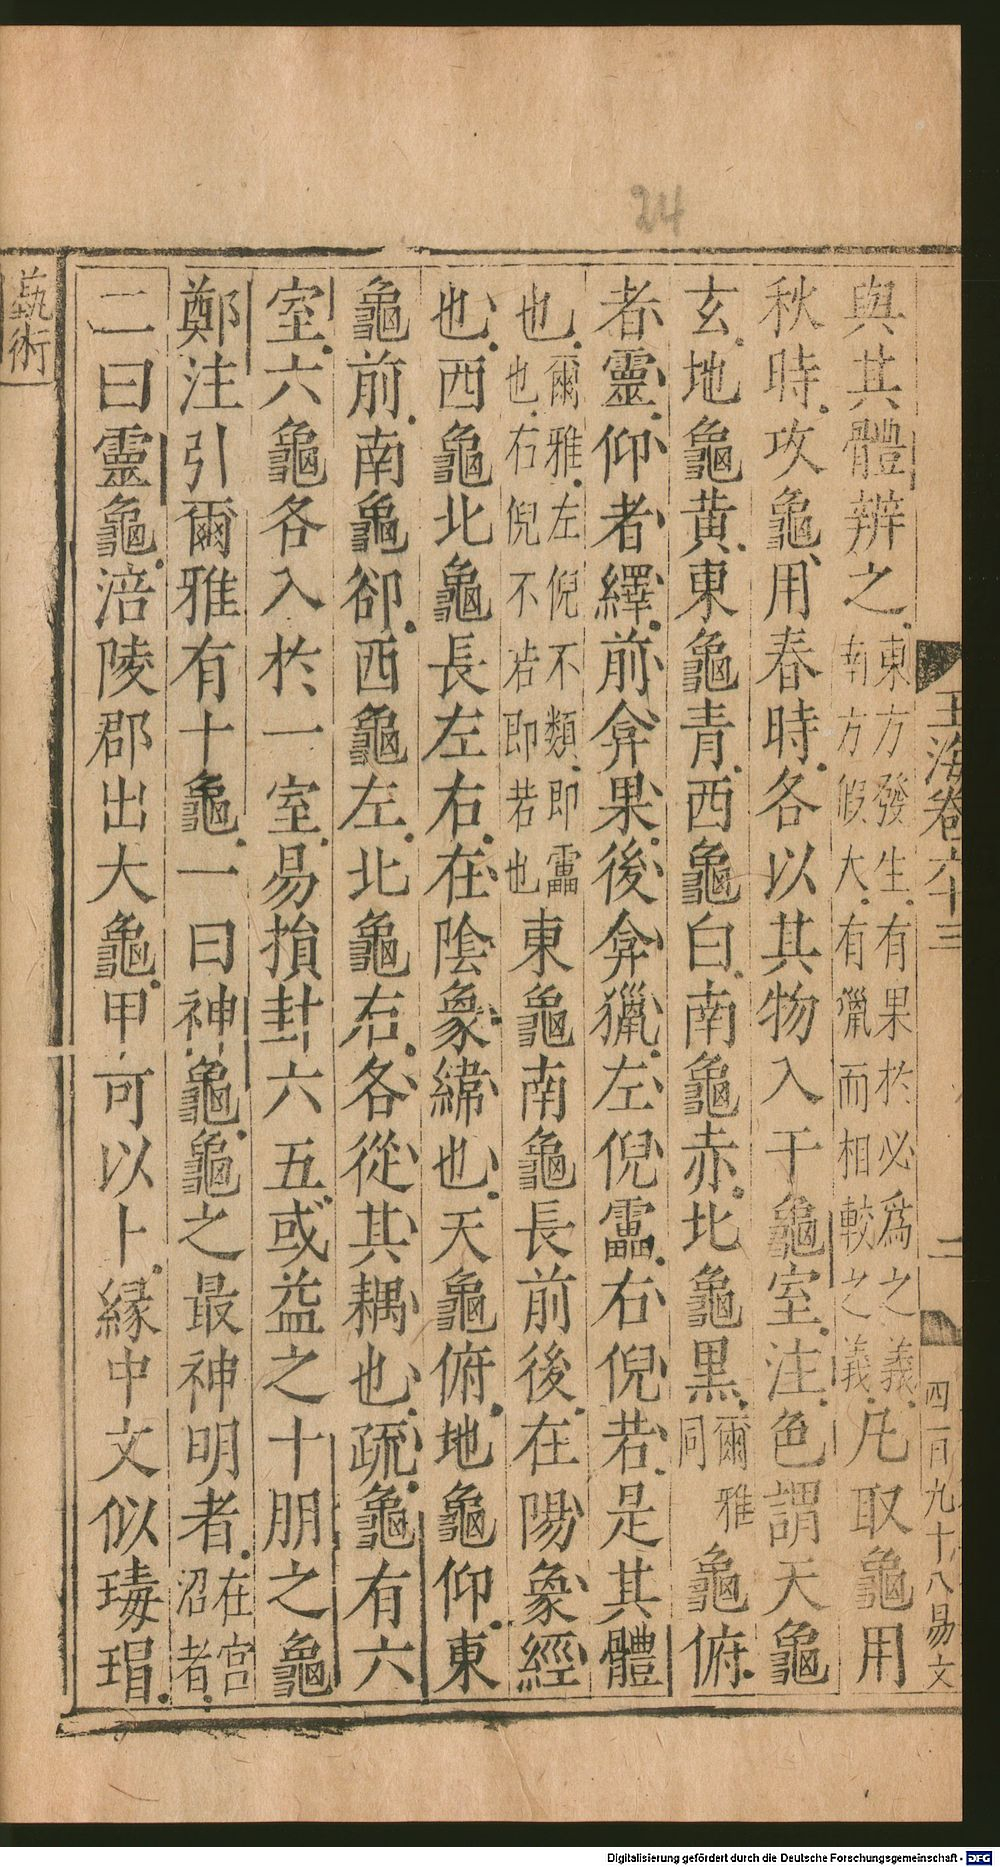 24
玉海卷六十三
二
四百九十八易文
與其體辨之東方發生有果於必爲之義南方假大有獵而相較之義凡取龜用
秋時攻龜用春時各以其物入于龜室注色謂天龜
玄地龜黄東龜青西龜白南龜赤北龜黒爾雅同龜俯
者靈仰者繹前弇果後弇獵左倪靁右倪若是其體
也爾雅左倪不類即靁也右倪不若即若也東龜南龜長前後在陽象經
也西龜北龜長左右在陰象緯也天龜俯地龜仰東
龜前南龜卻西龜左北龜右各從其耦也疏龜有六
室六龜各入於一室易損卦六五或益之十朋之龜
鄭注引爾雅有十龜一曰神龜龜之最神明者在宫沼者
二曰靈龜涪陵郡出大龜甲可以卜縁中文似瑇瑁
藝術
Digitalisierung gefördert durch die Deutsche Forschungsgemeinschaft - DFG